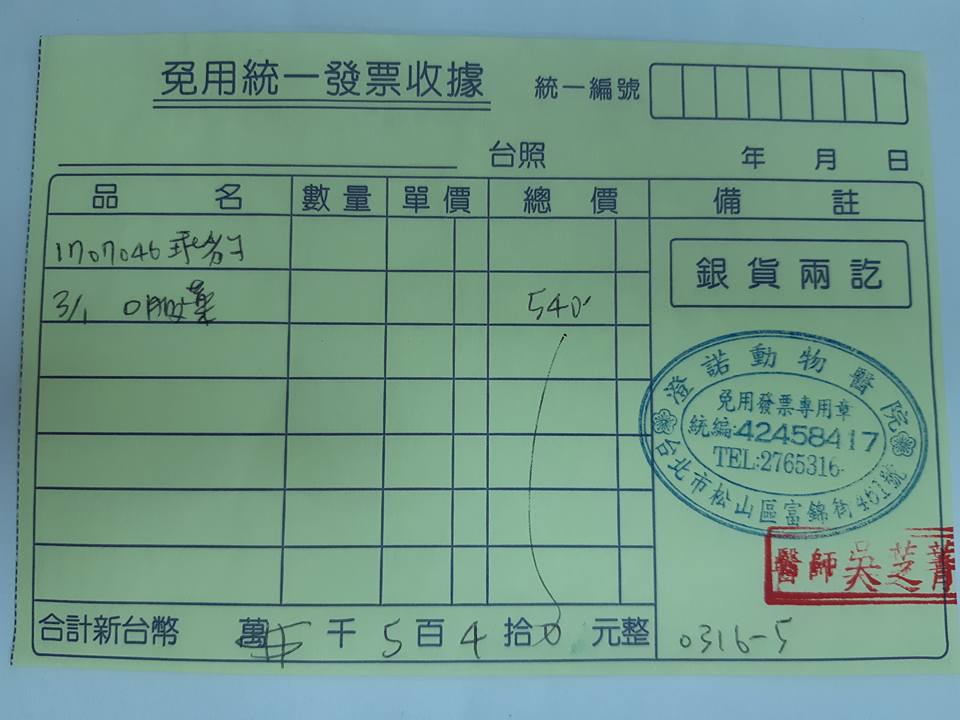 免用統一發票收據
統一編號
台照
年 月 日
品名 數量 單價 總價 備註
1707046
3/1 口服藥 540
銀貨兩訖
澄諾動物醫院
免用發票專用章
統編:42458417
TEL:2765316
台北市松山區富錦街451號
醫師 吳芝菁
合計新台幣 萬 千 5 百 4 拾 0 元整
0316-5